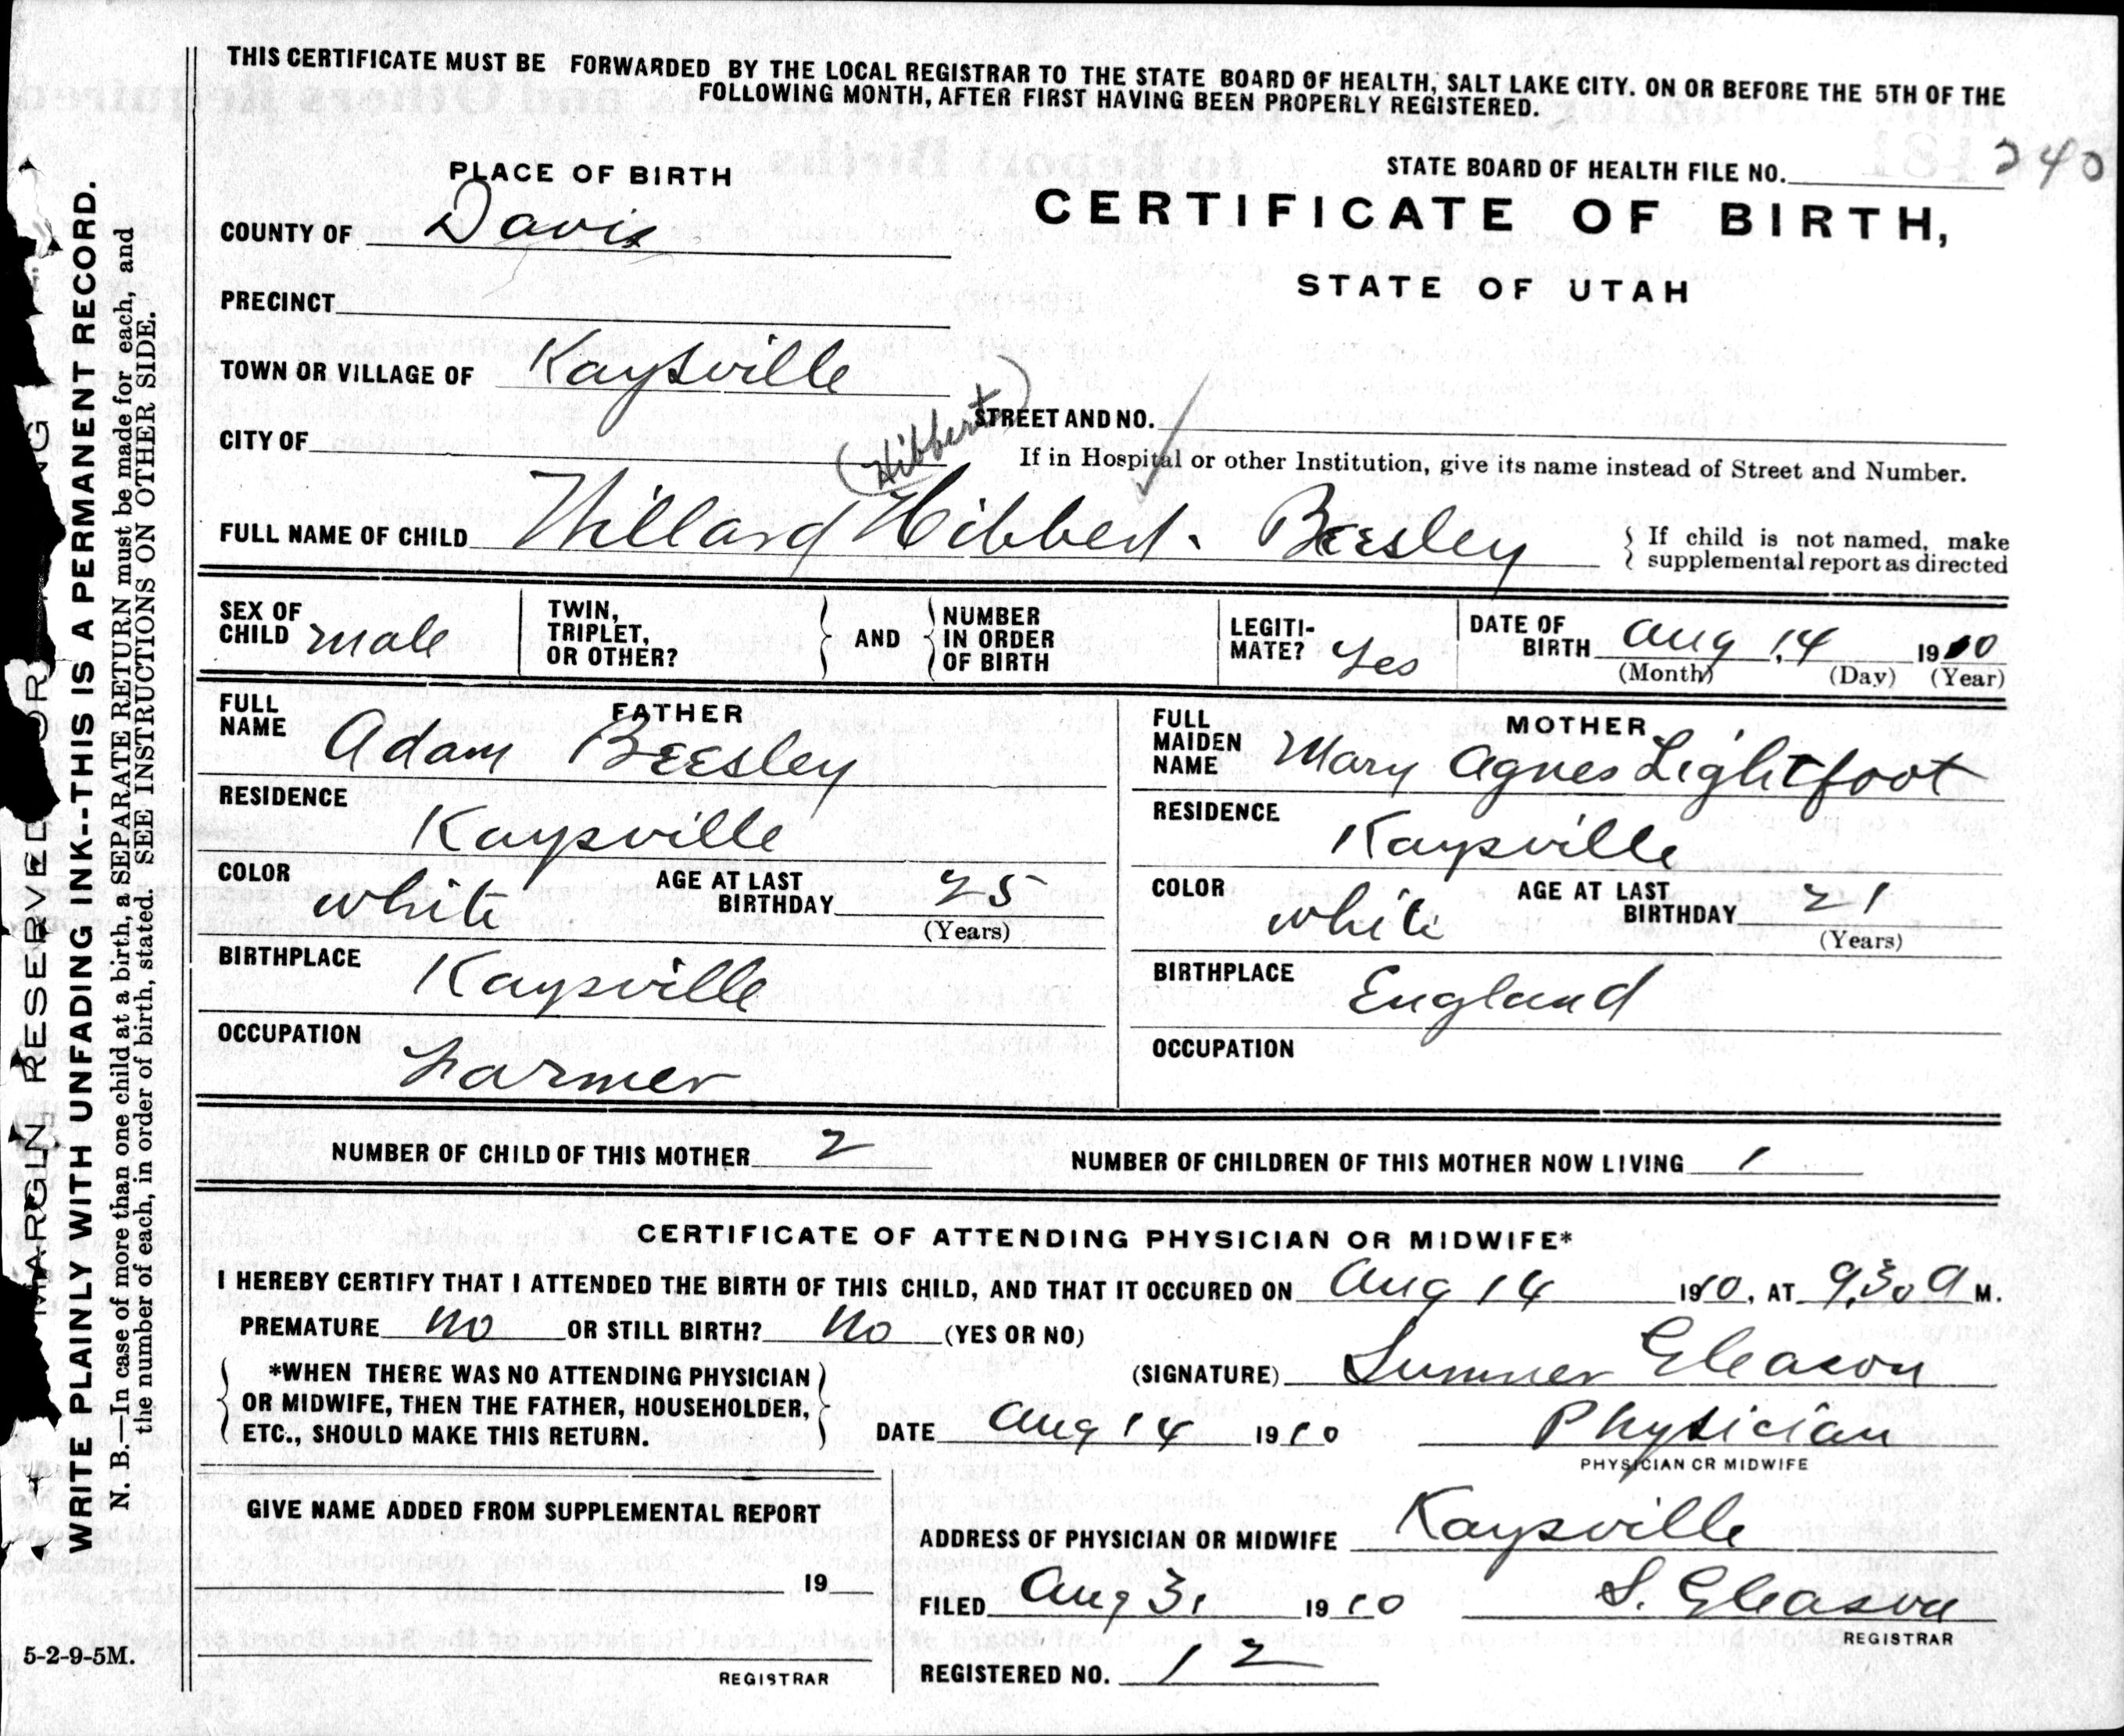 THIS CERTIFICATE MUST BE FORWARDED BY THE LOCAL REGISTRAR TO THE STATE BOARD OF HEALTH, SALT LAKE CITY. ON OR BEFORE THE 5TH OF THE
FOLLOWING MONTH, AFTER FIRST HAVING BEEN PROPERLY REGISTERED.
PLACE OF BIRTH
STATE BOARD OF HEALTH FILE NO. 240
CERTIFICATE OF BIRTH,
STATE OF UTAH
COUNTY OF Davis
PRECINCT
TOWN OR VILLAGE OF Kaysville
STREET AND NO.
CITY OF
(Hibbert)
If in Hospital or other Institution, give its name instead of Street and Number.
FULL NAME OF CHILD Willard Hibbert. Beesley
If child is not named, make
supplemental report as directed
SEX OF CHILD male
TWIN, TRIPLET, OR OTHER?
AND
NUMBER IN ORDER OF BIRTH
LEGITI-MATE? Yes
DATE OF BIRTH Aug 14 1910
(Month) (Day) (Year)
FATHER
FULL NAME Adam Beesley
RESIDENCE Kaysville
COLOR white AGE AT LAST BIRTHDAY 25
(Years)
BIRTHPLACE Kaysville
OCCUPATION Farmer
MOTHER
FULL MAIDEN NAME Mary Agnes Lightfoot
RESIDENCE Kaysville
COLOR white AGE AT LAST BIRTHDAY 21
(Years)
BIRTHPLACE England
OCCUPATION
NUMBER OF CHILD OF THIS MOTHER 2 NUMBER OF CHILDREN OF THIS MOTHER NOW LIVING 1
CERTIFICATE OF ATTENDING PHYSICIAN OR MIDWIFE*
I HEREBY CERTIFY THAT I ATTENDED THE BIRTH OF THIS CHILD, AND THAT IT OCCURED ON Aug 14 1910, AT 9,30 A M.
PREMATURE No OR STILL BIRTH? No (YES OR NO)
*WHEN THERE WAS NO ATTENDING PHYSICIAN
OR MIDWIFE, THEN THE FATHER, HOUSEHOLDER,
ETC., SHOULD MAKE THIS RETURN.
(SIGNATURE) Sumner Gleason
DATE Aug 14 1910 Physician
PHYSICIAN OR MIDWIFE
GIVE NAME ADDED FROM SUPPLEMENTAL REPORT
19
REGISTRAR
ADDRESS OF PHYSICIAN OR MIDWIFE Kaysville
FILED Aug 31 1910 S. Gleason
REGISTRAR
REGISTERED NO. 12
5-2-9-5M.
MARGIN RESERVED
WRITE PLAINLY WITH UNFADING INK--THIS IS A PERMANENT RECORD.
N. B.—In case of more than one child at a birth, a SEPARATE RETURN must be made for each, and
the number of each, in order of birth, stated. SEE INSTRUCTIONS ON OTHER SIDE.